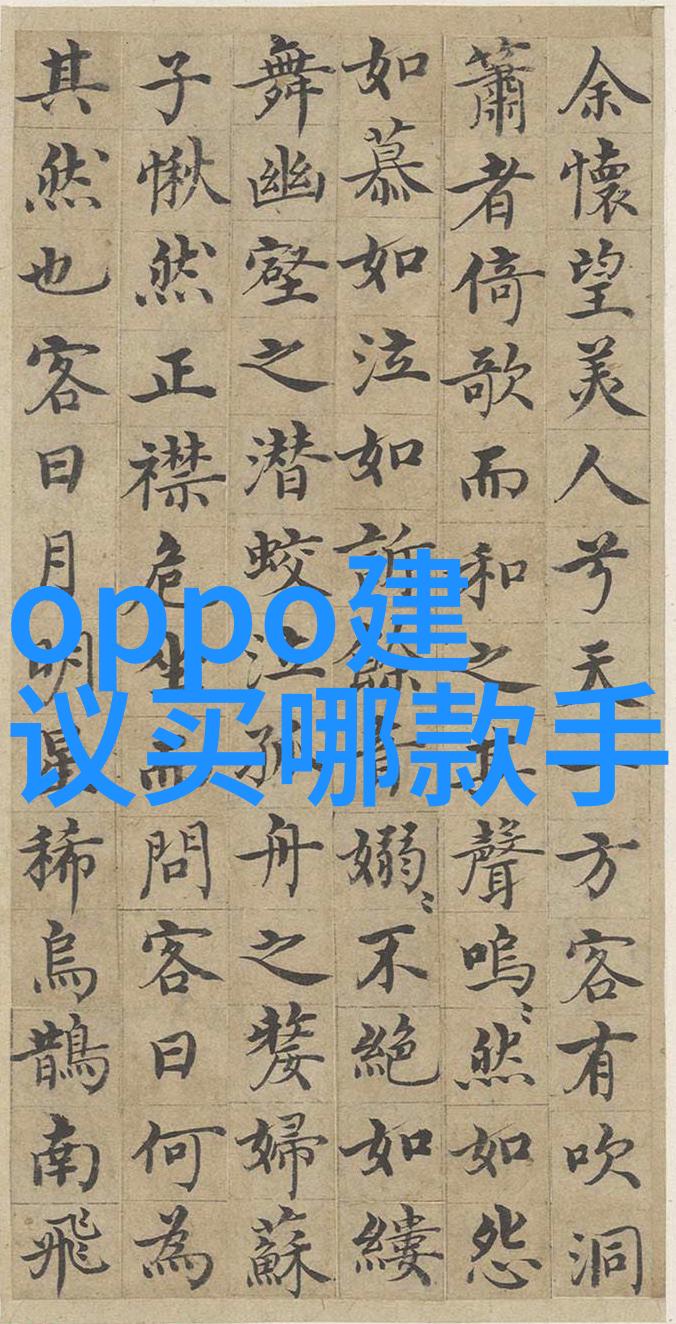 余懷望美人兮天一方客有吹洞
簫者倚歌而和之其聲嗚〻然如怨
如慕如泣如訴餘音嫋〻不絕如縷
舞幽壑之潜蛟泣孤舟之嫠婦蘇
子愀然正襟危坐而問客曰何為
其然也客曰月明星稀烏鵲南飛
oppo建
议买哪款手